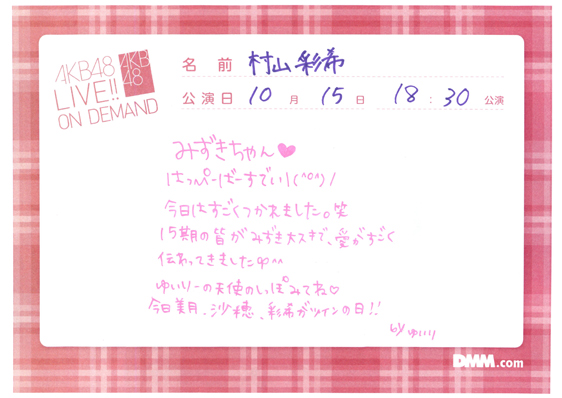 AKB48
LIVE!!
ON DEMAND
AKB
48
名 前 村山彩希
公演日 10 月 15 日 18 : 30 公演
みずきちゃん♥
はっぴーばーすでい!(^o^)/
今日はすごくつかれました。笑
15期の皆がみずき大スキで、愛がすごく
伝わってきました^^
ゆいりーの天使のしっぽみてね♡
今日美月、沙穂、彩希がツインの日!!
by ゆいり
DMM.com